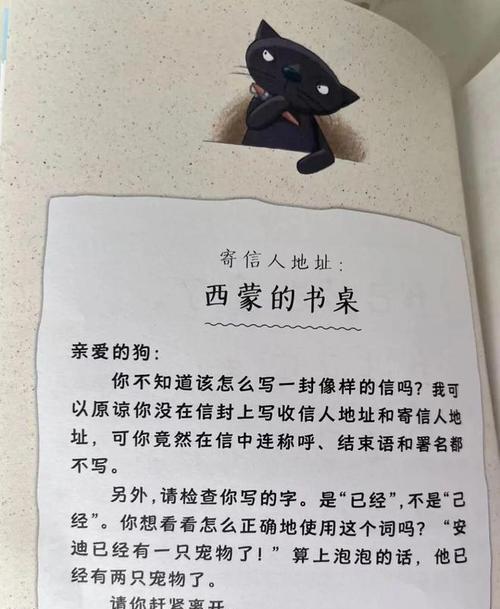 寄信人地址：
西蒙的书桌
亲爱的狗：
你不知道该怎么写一封像样的信吗？我可
以原谅你没在信封上写收信人地址和寄信人地
址，可你竟然在信中连称呼、结束语和署名都
不写。
另外，请检查你写的字。是“已经”，不是“己
经”。你想看看怎么正确地使用这个词吗？“安
迪已经有一只宠物了！”算上泡泡的话，他已
经有两只宠物了。
请你赶紧离开